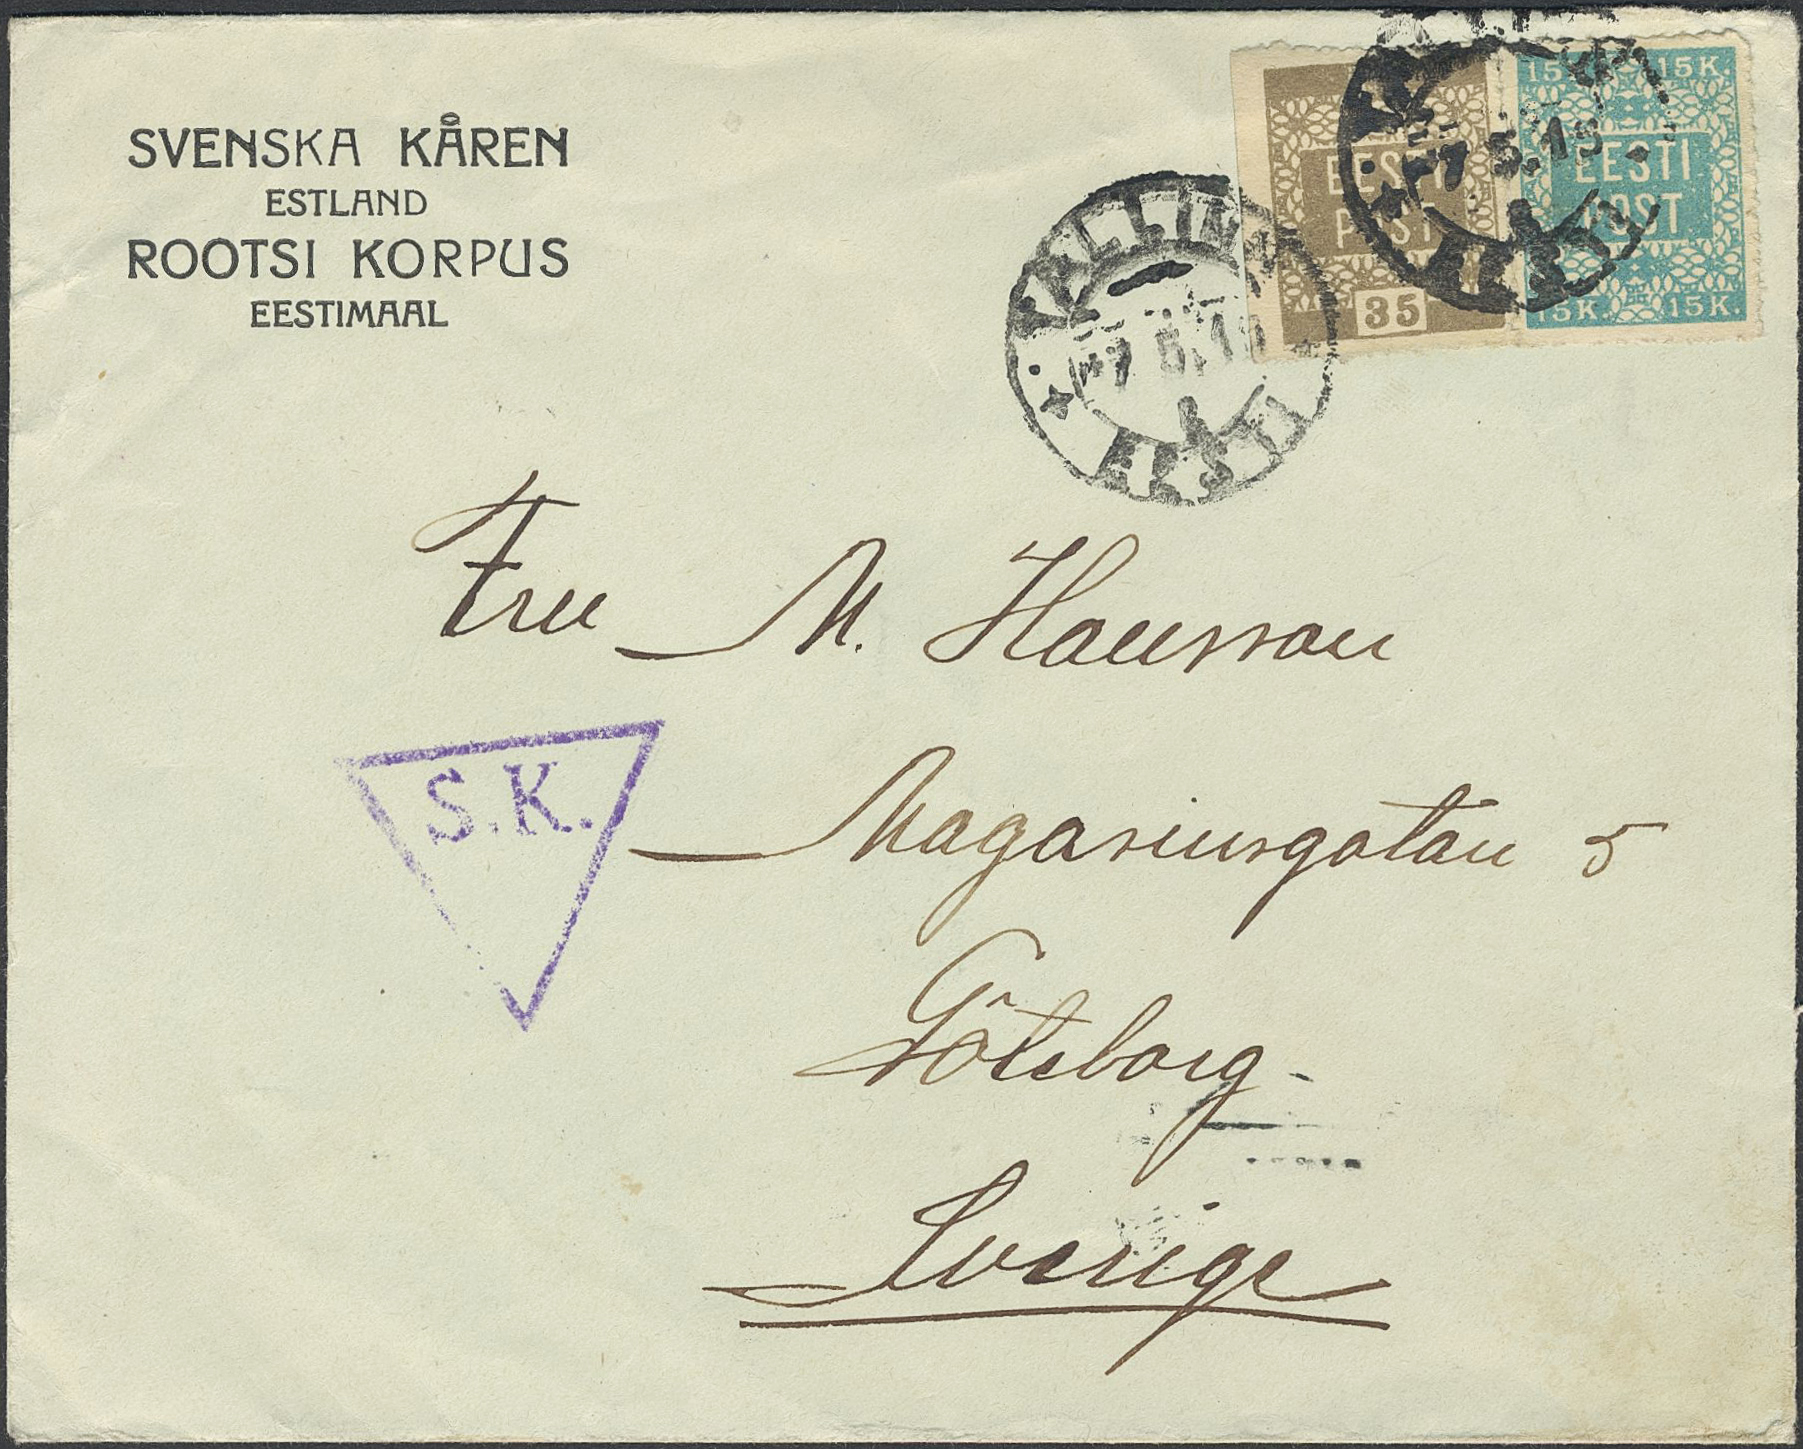 SVENSKA KÅREN
ESTLAND
ROOTSI KORPUS
EESTIMAAL
EESTI
POST
35
15 K. 15 K.
EESTI
POST
15 K. 15 K.
TALLINN
7 5.19
EESTI
TALLINN
7 5.19
EESTI
Fru M. Hansson
S.K.
Magasinsgatan 5
Göteborg
Sverige